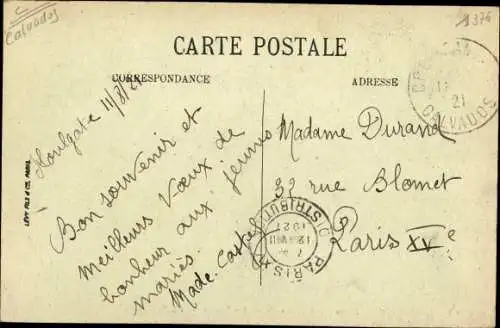 C
Calvados
1376
CARTE POSTALE
CORRESPONDANCE
ADRESSE
Houlgate 11/8/21
Bon souvenir et
meilleurs Vœux de
bonheur aux jeunes
mariés.
Made. Castel
Madame Durand
32 rue Blomet
Paris XVe
21
CALVADOS
PARIS XV
DISTRIBUTION
1921
LÉVY FILS & CIE, PARIS.